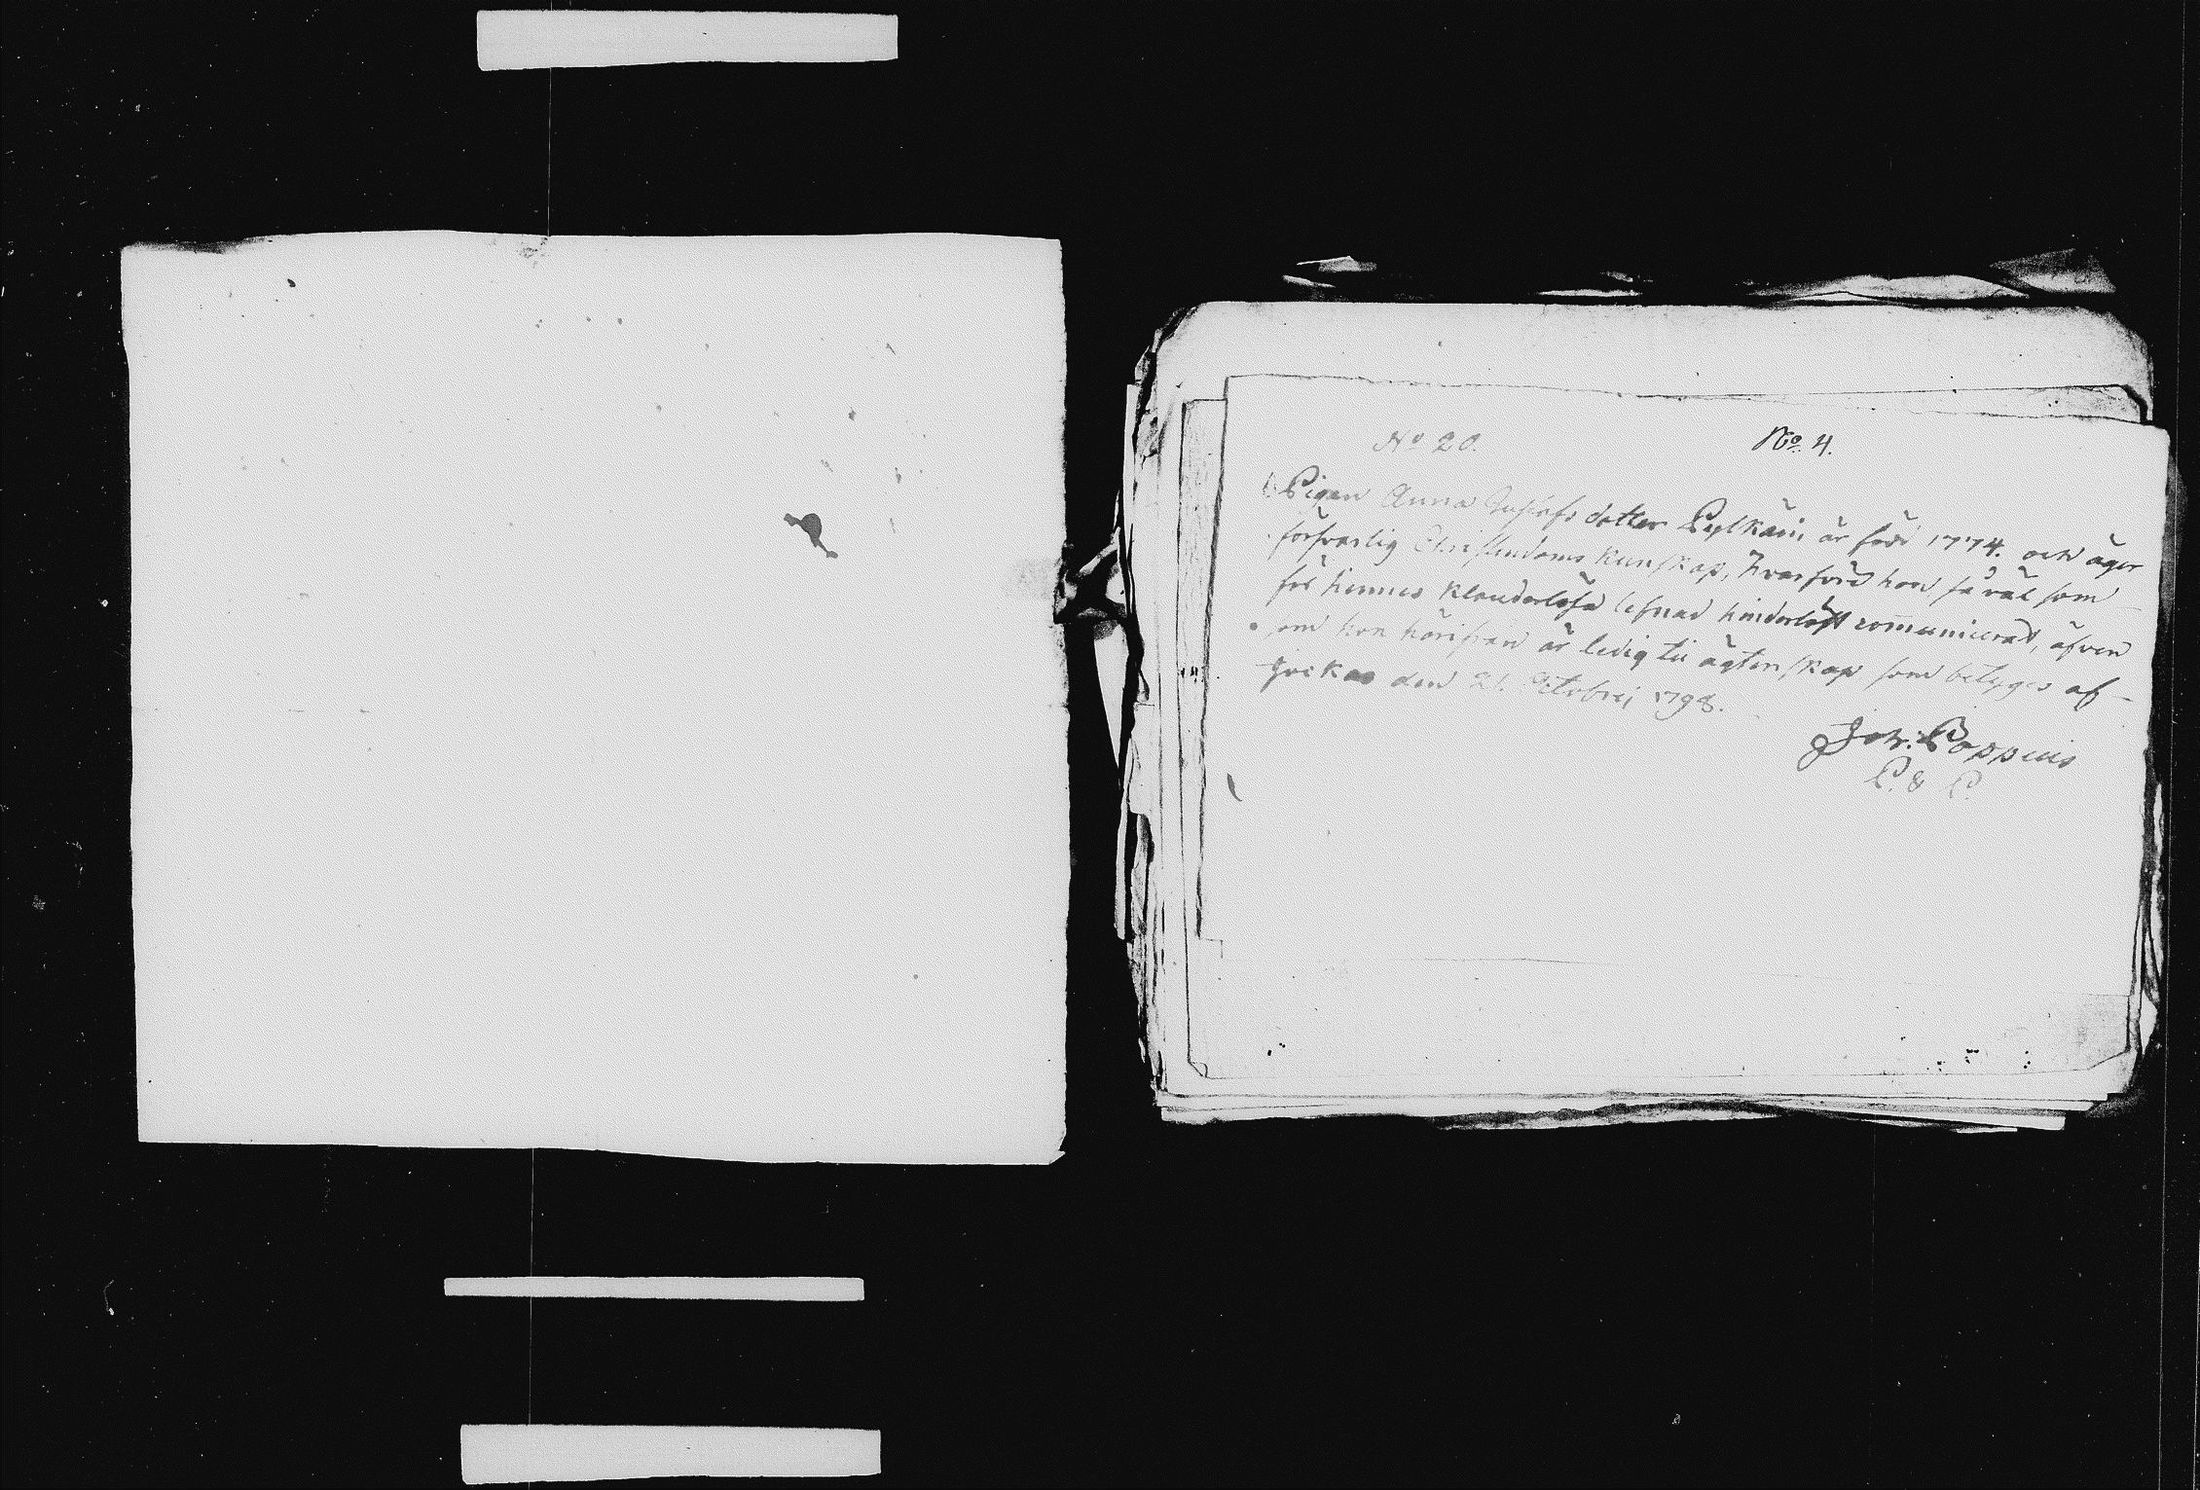 No 20. No 4.
Pigan Anna Gustafs dotter Pylkäin är född 1774. och äger
försvarlig Christendoms kunskap, hvarföre hon så väl som
för hennes klanderlösa lefnad hinderlöst comunicerat, äfven
som hon härifrån är ledig til ägtenskap som betyges af
Jockas den 21. Octobris 1798.
Joh: Poppius
P. & P.